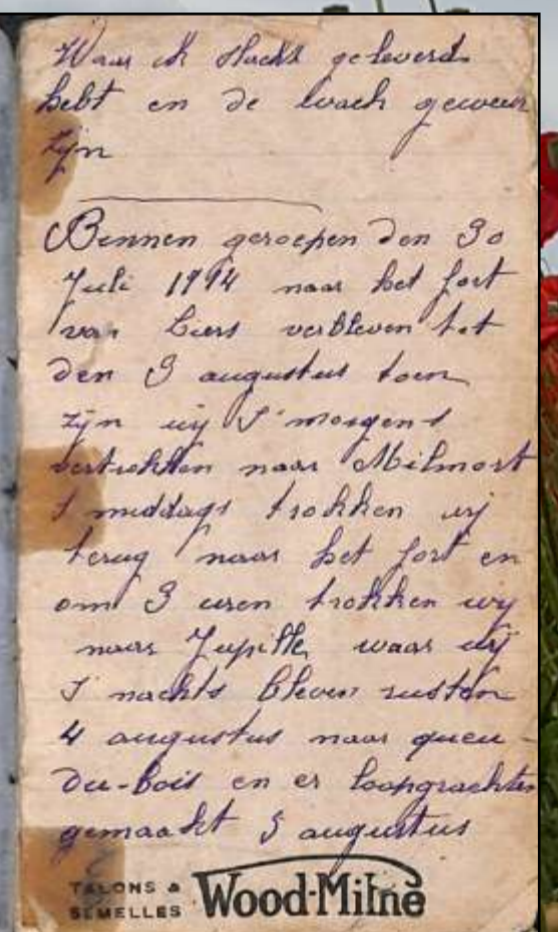 Waar ik slacht geleverd
hebt en de wach geweest
zijn
Bennen geroepen den 30
Juli 1914 naar het fort
van Liers verbleven tot
den 3 augustus toen
zijn wij S'morgens
vertrokken naar Milmort
S middags trokken wij
terug naar het fort en
om 3 uren trokken wij
naar Jupille waar wij
S nachts bleven rusten
4 augustus naar queu-
du-bois en er loopgrachten
gemaakt 5 augustus
TALONS &
SEMELLES Wood-Milne